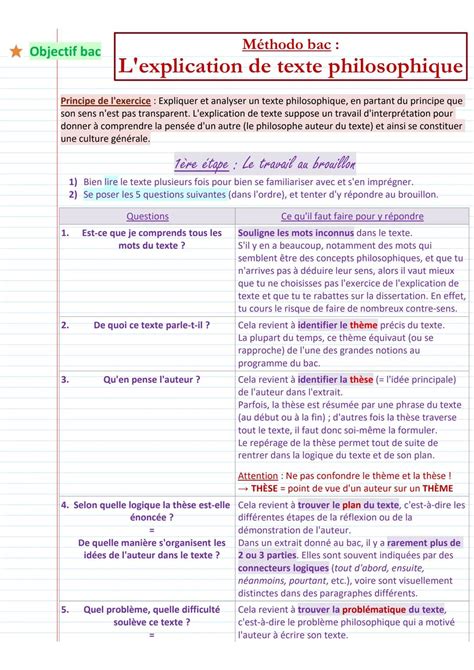 Objectif bac
Méthodo bac :
L'explication de texte philosophique
Principe de l'exercice : Expliquer et analyser un texte philosophique, en partant du principe que
son sens n'est pas transparent. L'explication de texte suppose un travail d'interprétation pour
donner à comprendre la pensée d'un autre (le philosophe auteur du texte) et ainsi se constituer
une culture générale.
1ère étape : Le travail au brouillon
1) Bien lire le texte plusieurs fois pour bien se familiariser avec et s'en imprégner.
2) Se poser les 5 questions suivantes (dans l'ordre), et tenter d'y répondre au brouillon.
Questions
Ce qu'il faut faire pour y répondre
1. Est-ce que je comprends tous les
mots du texte ?
Souligne les mots inconnus dans le texte.
S'il y en a beaucoup, notamment des mots qui
semblent être des concepts philosophiques, et que tu
n'arrives pas à déduire leur sens, alors il vaut mieux
que tu ne choisisses pas l'exercice de l'explication de
texte et que tu te rabattes sur la dissertation. En effet,
tu cours le risque de faire de nombreux contre-sens.
2. De quoi ce texte parle-t-il ?
Cela revient à identifier le thème précis du texte.
La plupart du temps, ce thème équivaut (ou se
rapproche) de l'une des grandes notions au
programme du bac.
3. Qu'en pense l'auteur ?
Cela revient à identifier la thèse (= l'idée principale)
de l'auteur dans l'extrait.
Parfois, la thèse est résumée par une phrase du texte
(au début ou à la fin) ; d'autres fois la thèse traverse
tout le texte, il faut donc soi-même la formuler.
Le repérage de la thèse permet tout de suite de
rentrer dans la logique du texte et de son plan.
Attention : Ne pas confondre le thème et la thèse !
→ THÈSE = point de vue d'un auteur sur un THÈME
4. Selon quelle logique la thèse est-elle
énoncée ?
=
De quelle manière s'organisent les
idées de l'auteur dans le texte ?
Cela revient à trouver le plan du texte, c'est-à-dire les
différentes étapes de la réflexion ou de la
démonstration de l'auteur.
Dans un extrait donné au bac, il y a rarement plus de
2 ou 3 parties. Elles sont souvent indiquées par des
connecteurs logiques (tout d'abord, ensuite,
néanmoins, pourtant, etc.), voire sont visuellement
distinctes dans des paragraphes différents.
5. Quel problème, quelle difficulté
soulève ce texte ?
=
Cela revient à trouver la problématique du texte,
c'est-à-dire le problème philosophique qui a motivé
l'auteur à écrire son texte.